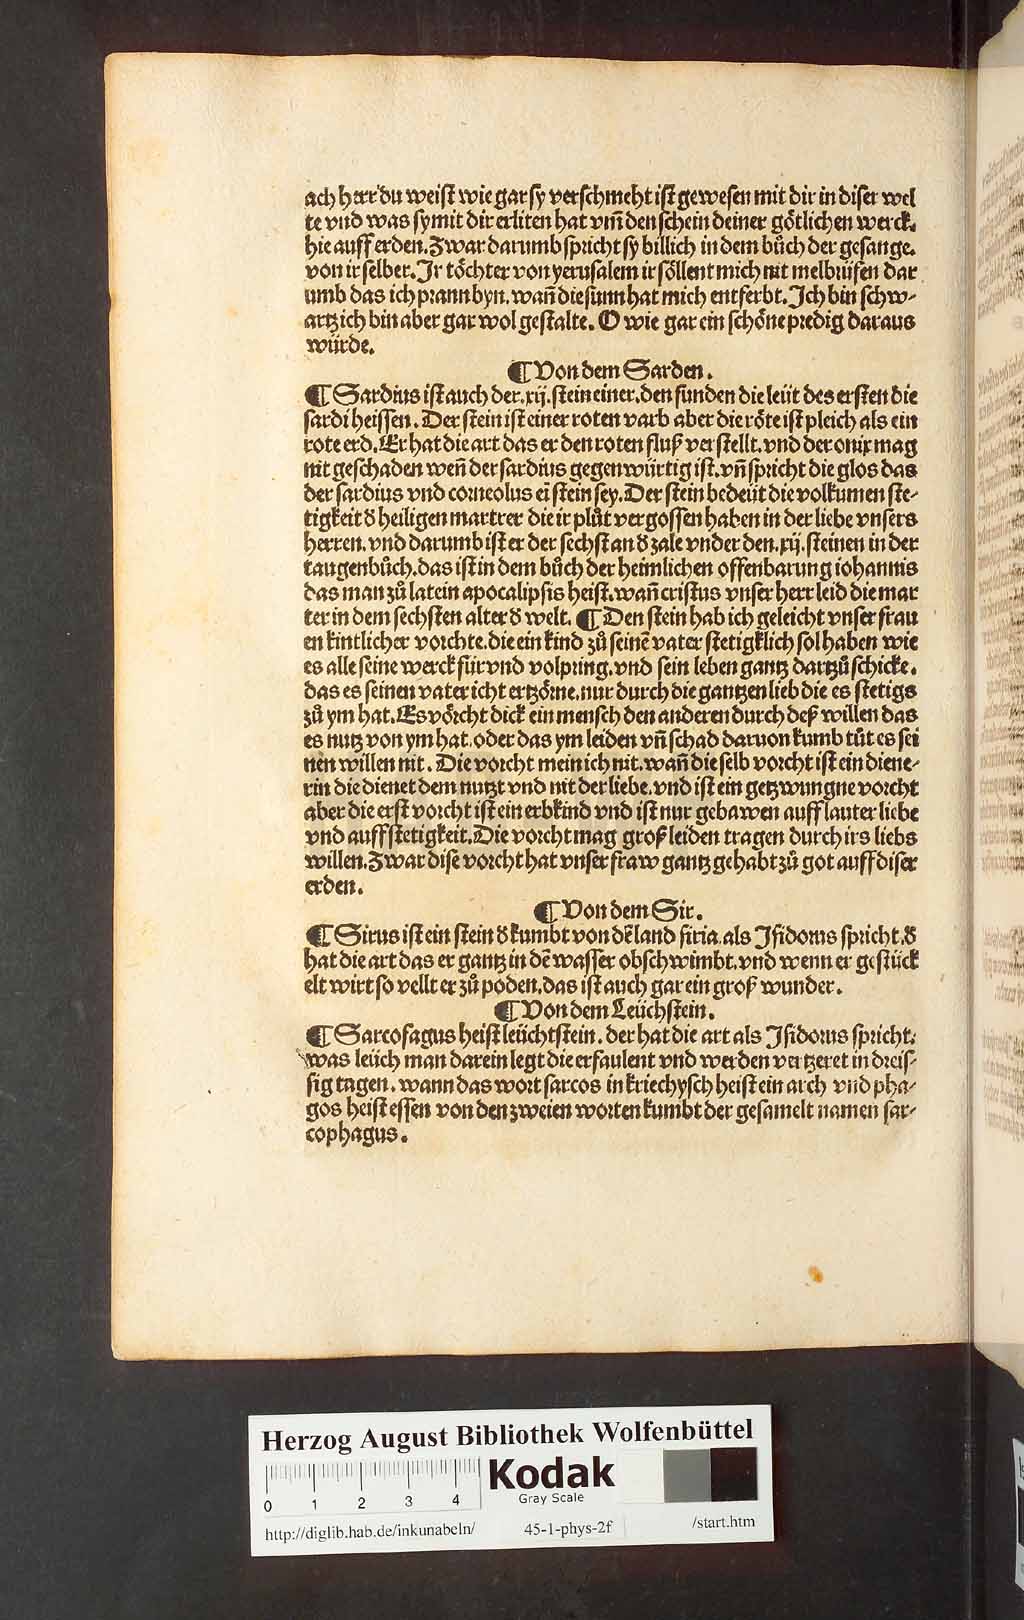 ach herr du weist wie gar sy verschmeht ist gewesen mit dir in diser wel
te vnd was sy mit dir erliten hat vm̄ den schein deiner götlichen werck.
hie auff erden. Zwar darumb spricht sy billich in dem bůch der gesange.
von ir selber. Jr töchter von yerusalem ir söllent mich nit melbrüfen dar
umb das ich prann byn. wañ die sunn hat mich entferbt. Jch bin schw-
artz ich bin aber gar wol gestalte. O wie gar ein schöne predig daraus
würde.
¶ Von dem Sarden.
¶ Sardius ist auch der .xij. stein einer. den funden die leüt des ersten die
sardi heissen. Der stein ist einer roten varb aber die röte ist pleich als ein
rote erd. Er hat die art das er den roten fluß verstellt. vnd der onix mag
nit geschaden weñ der sardius gegenwürtig ist. vñ spricht die glos das
der sardius vnd corneolus ei᷑ stein sey. Der stein bedeüt die volkumen ste-
tigkeit ď heiligen martrer die ir plůt vergossen haben in der liebe vnsers
herren. vnd darumb ist er der sechst an ď zale vnder den .xij. steinen in der
taugenbůch. das ist in dem bůch der heimlichen offenbarung iohannis
das man zů latein apocalipsis heist. wañ cristus vnser herr leid die mar
ter in dem sechsten alter ď welt. ¶ Den stein hab ich geleicht vnser frau
en kintlicher vorchte. die ein kind zů seinē vater stetigklich sol haben wie
es alle seine werck für vnd volpring. vnd sein leben gantz dartzů schicke.
das es seinen vater icht ertzörne. nur durch die gantzen lieb die es stetigs
zů ym hat. Es vörcht dick ein mensch den anderen durch deß willen das
es nutz von ym hat. oder das ym leiden vñ schad daruon kumb tůt es sei
nen willen nit. Die vorcht mein ich nit. wañ die selb vorcht ist ein diene-
rin die dienet dem nutzt vnd nit der liebe. vnd ist ein getzwungne vorcht
aber die erst vorcht ist ein erbkind vnd ist nur gebawen auff lauter liebe
vnd auff stetigkeit. Die vorcht mag groß leiden tragen durch irs liebs
willen. Zwar dise vorcht hat vnser fraw gantz gehabt zů got auff diser
erden.
¶ Von dem Sir.
¶ Sirus ist ein stein ď kumbt von dē land siria. als Jsidorus spricht. ď
hat die art das er gantz in dē wasser obschwimbt. vnd wenn er gestück
elt wirt so vellt er zů poden. das ist auch gar ein groß wunder.
¶ Von dem Leüchstein.
¶ Sarcofagus heist leüchtstein. der hat die art als Jsidorus spricht.
was leüch man darein legt die erfaulent vnd werden vertzeret in dreis-
sig tagen. wann das wort sarcos in kriechysch heist ein arch vnd pha-
gos heist essen von den zweien worten kumbt der gesamelt namen sar-
cophagus.
Herzog August Bibliothek Wolfenbüttel
0 1 2 3 4
Kodak
Gray Scale
http://diglib.hab.de/inkunabeln/ 45-1-phys-2f /start.htm